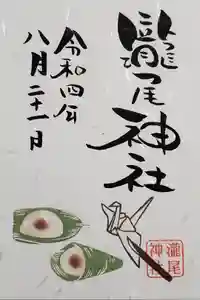 瀧尾神社
令和四年
八月二十一日
瀧尾
神社